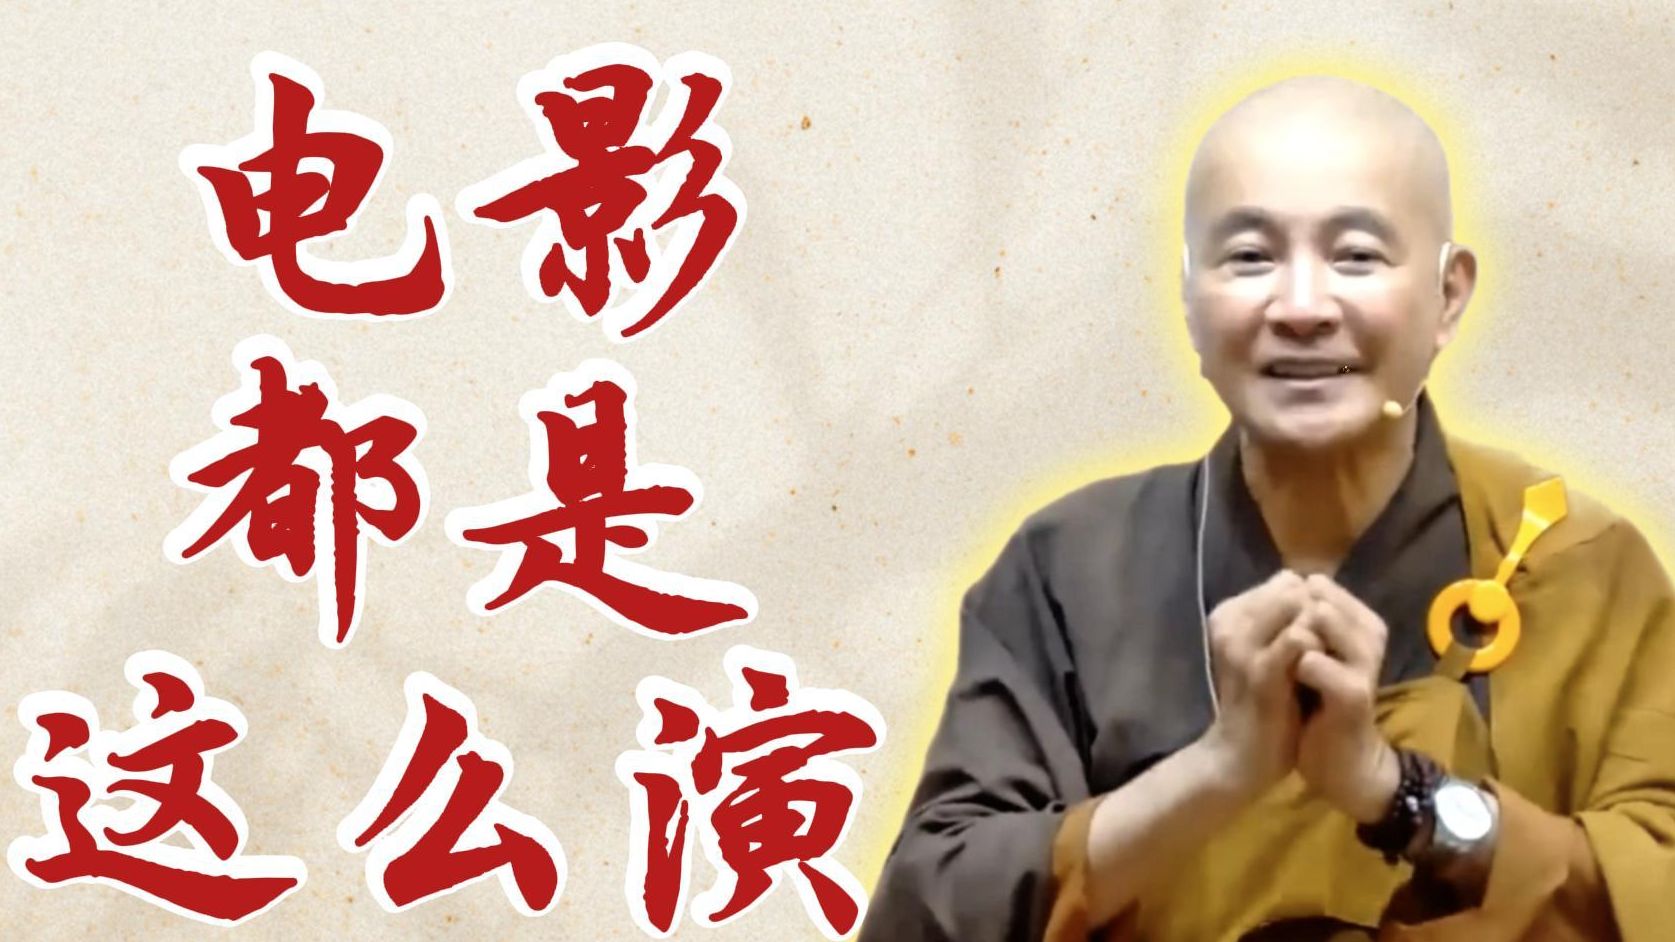 电影
都是
这么演